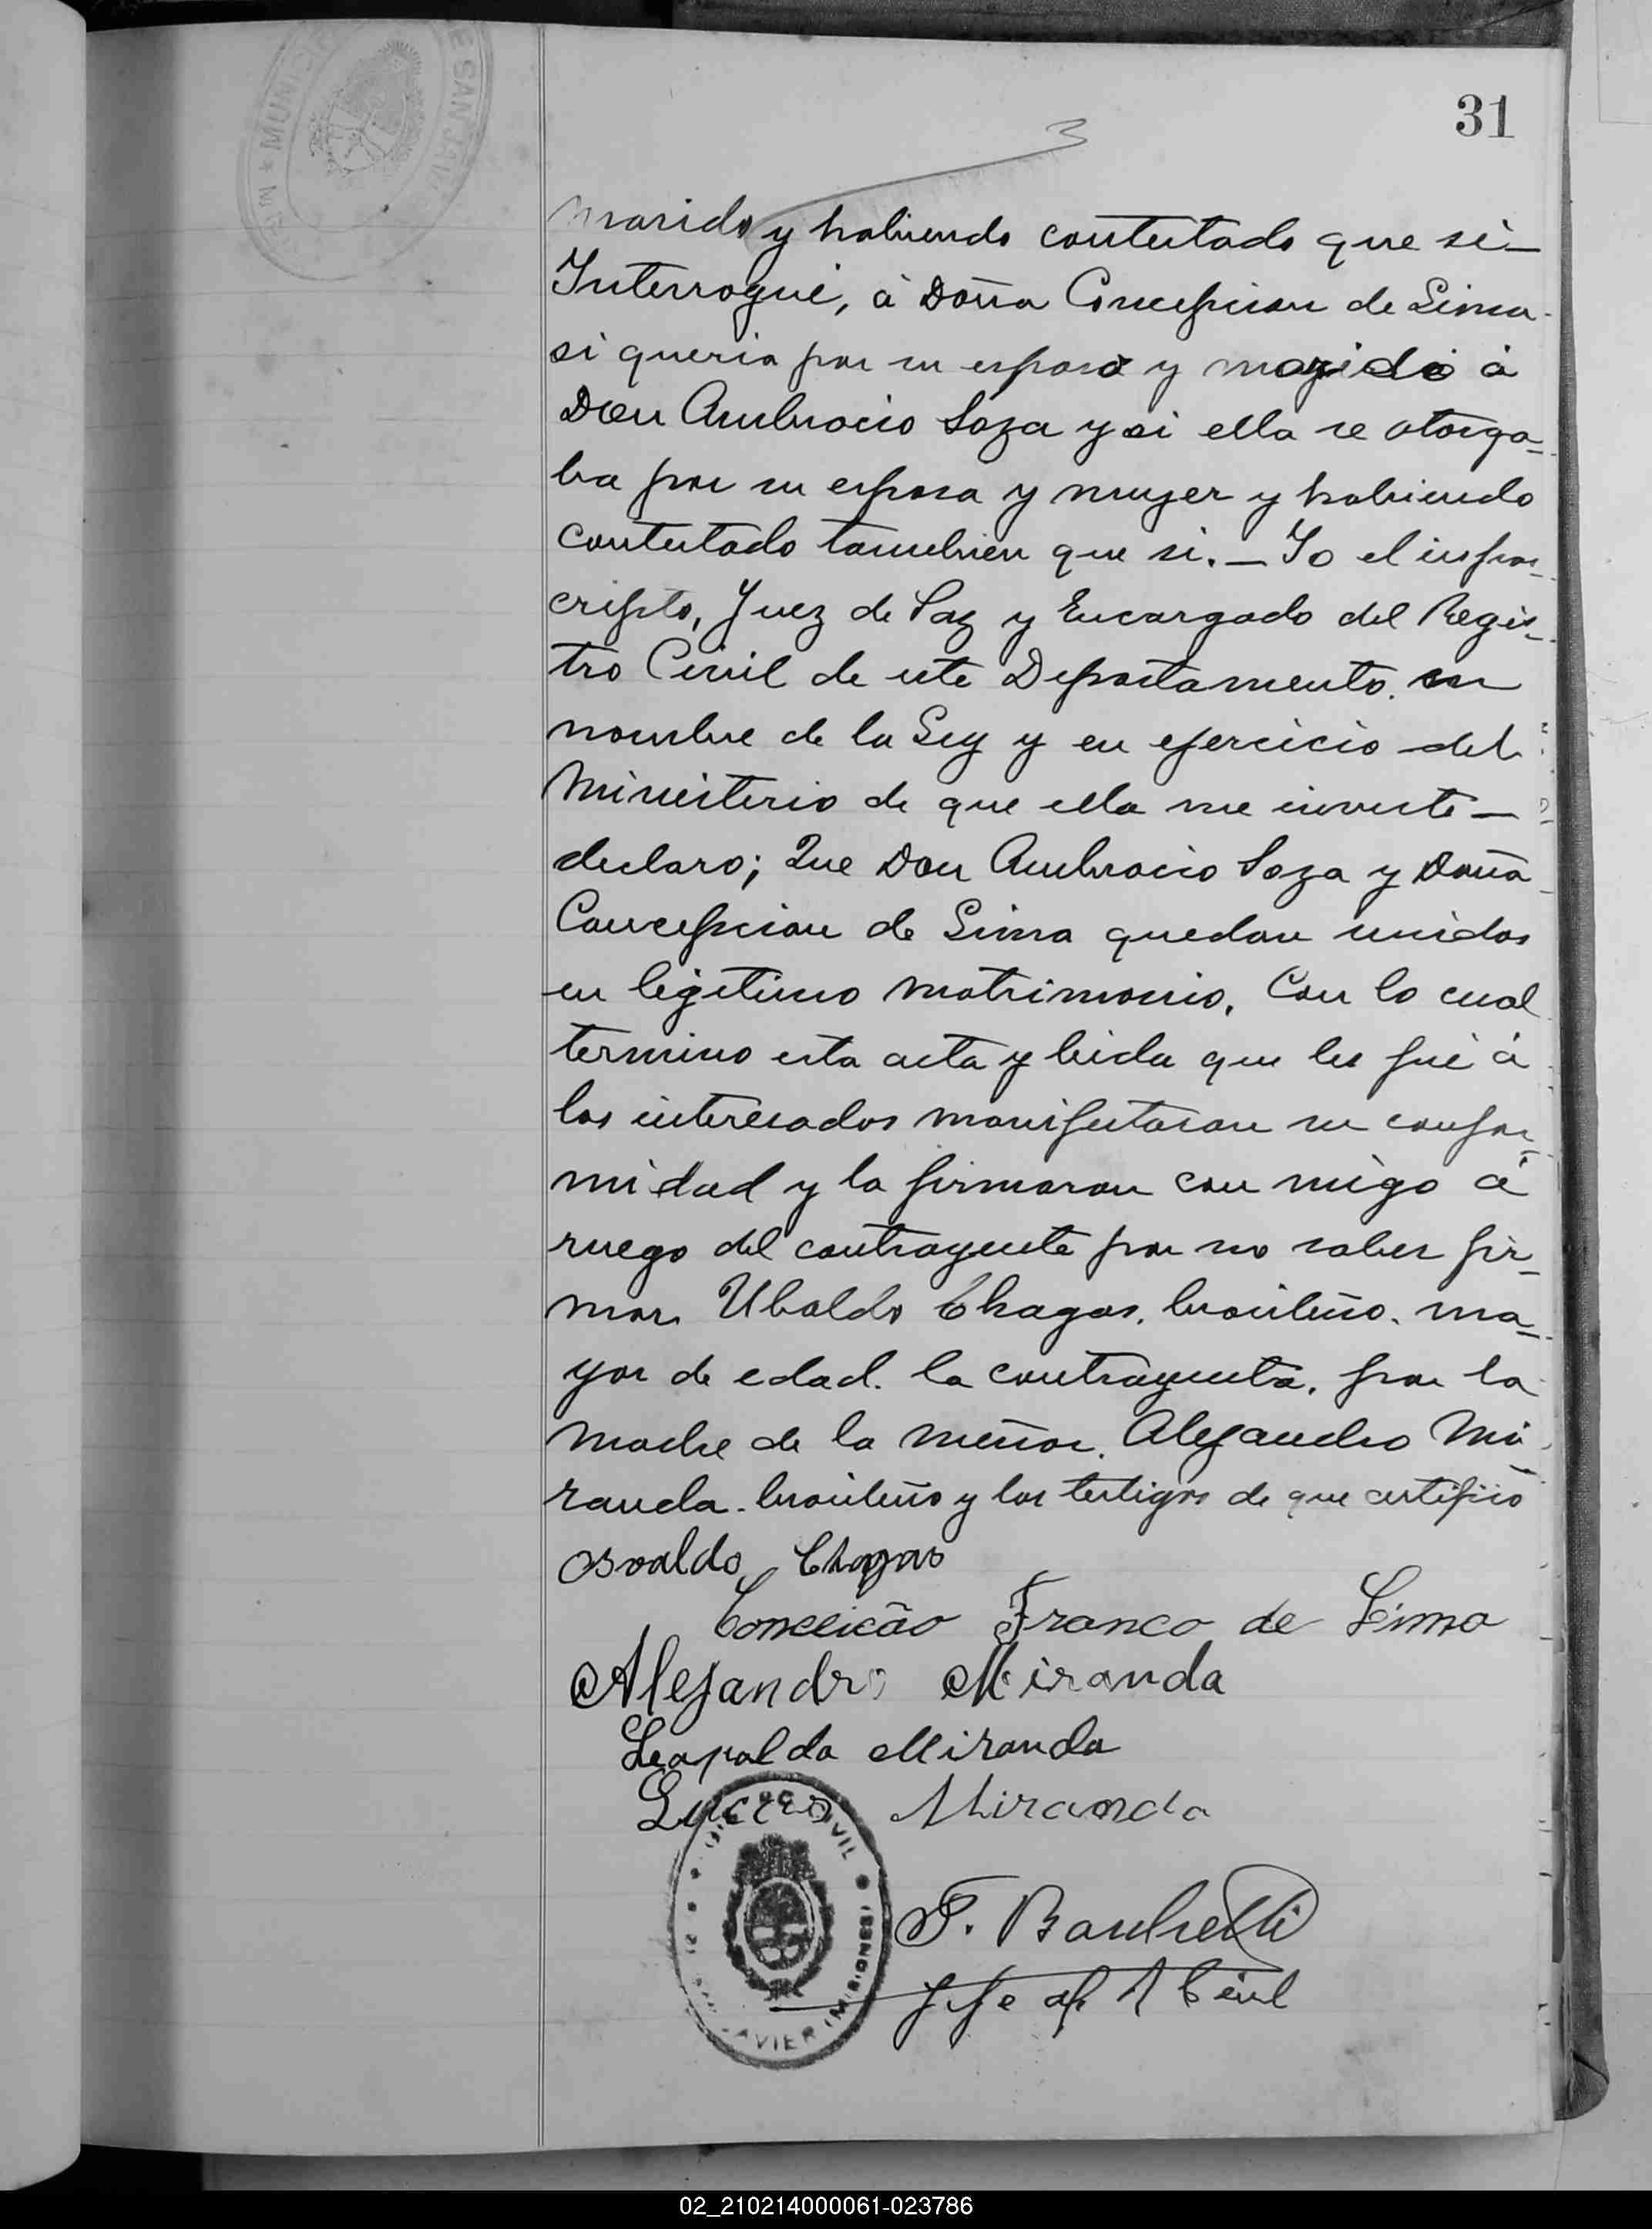 31
3
marido y habiendo contestado que si_
Interrogué, á Doña Concepcion de Lima
si queria por su esposo y marido á
Don Ambrocio Soza y si ella se otorga_
ba por su esposa y mujer y habiendo
contestado tambien que si._ Yo el infras_
cripto, Juez de Paz y Encargado del Regis_
tro Civil de este Departamento. en
nombre de la Ley y en ejercicio del
Ministerio de que ella me inviste_
declaro; Que Don Ambrocio Soza y Doña
Concepcion de Lima quedan unidos
en legitimo matrimonio. Con lo cual
termino esta acta y leida que les fué á
los interesados manifestaron su confor_
midad y la firmaron con migo á
ruego del contrayente por no saber fir_
mar. Ubaldo Chagas. brasileño. ma_
yor de edad. la contrayenta. por la
madre de la menor. Alejandro Mi_
randa. brasileño y los testigos de que certifico
Osvaldo Chagas
Conceicão Franco de Lima
Alejandro Miranda
Leopoldo Miranda
Lucas Miranda
F.
Jefe del R Civil
02_210214000061-023786